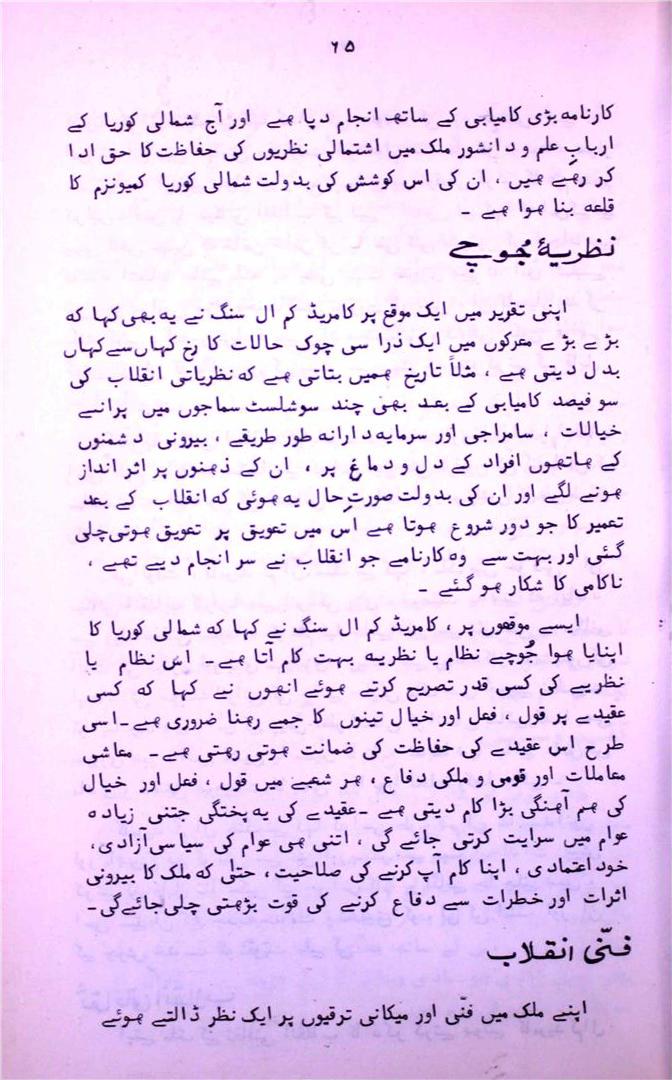 ٦٥
کارنامہ بڑی کامیابی کے ساتھ انجام دیا ہے اور آج شمالی کوریا کے
اربابِ علم و دانشور ملک میں اشتمالی نظریوں کی حفاظت کا حق ادا
کر رہے ہیں ، ان کی اس کوشش کی بدولت شمالی کوریا کمیونزم کا
قلعہ بنا ہوا ہے ۔
نظریۂ مجوچے
اپنی تقریر میں ایک موقع پر کامریڈ کم ال سنگ نے یہ بھی کہا کہ
بڑے بڑے معرکوں میں ایک ذرا سی چوک حالات کا رخ کہاں سے کہاں
بدل دیتی ہے ، مثلاً تاریخ ہمیں بتاتی ہے کہ نظریاتی انقلاب کی
سو فیصد کامیابی کے بعد بھی چند سوشلسٹ سماجوں میں پرانے
خیالات ، سامراجی اور سرمایہ دارانہ طور طریقے ، بیرونی دشمنوں
کے ہاتھوں افراد کے دل و دماغ پر ، ان کے ذہنوں پر اثر انداز
ہونے لگے اور ان کی بدولت صورتِ حال یہ ہوئی کہ انقلاب کے بعد
تعمیر کا جو دور شروع ہوتا ہے اس میں تعویق پر تعویق ہوتی چلی
گئی اور بہت سے وہ کارنامے جو انقلاب نے سر انجام دیے تھے ،
ناکامی کا شکار ہو گئے ۔
ایسے موقعوں پر ، کامریڈ کم ال سنگ نے کہا کہ شمالی کوریا کا
اپنایا ہوا جُوچے نظام یا نظریہ بہت کام آتا ہے ۔ اس نظام یا
نظریے کی کسی قدر تصریح کرتے ہوئے انہوں نے کہا کہ کسی
عقیدے پر قول ، فعل اور خیال تینوں کا جمے رہنا ضروری ہے ۔ اسی
طرح اس عقیدے کی حفاظت کی ضمانت ہوتی رہتی ہے ۔ معاشی
معاملات اور قومی و ملکی دفاع ، ہر شعبے میں قول ، فعل اور خیال
کی ہم آہنگی بڑا کام دیتی ہے ۔ عقیدے کی یہ پختگی جتنی زیادہ
عوام میں سرایت کرتی جائے گی ، اتنی ہی عوام کی سیاسی آزادی ،
خود اعتمادی ، اپنا کام آپ کرنے کی صلاحیت ، حتیٰ کہ ملک کا بیرونی
اثرات اور خطرات سے دفاع کرنے کی قوت بڑھتی چلی جائے گی ۔
فنّی انقلاب
اپنے ملک میں فنّی اور میکانی ترقیوں پر ایک نظر ڈالتے ہوئے